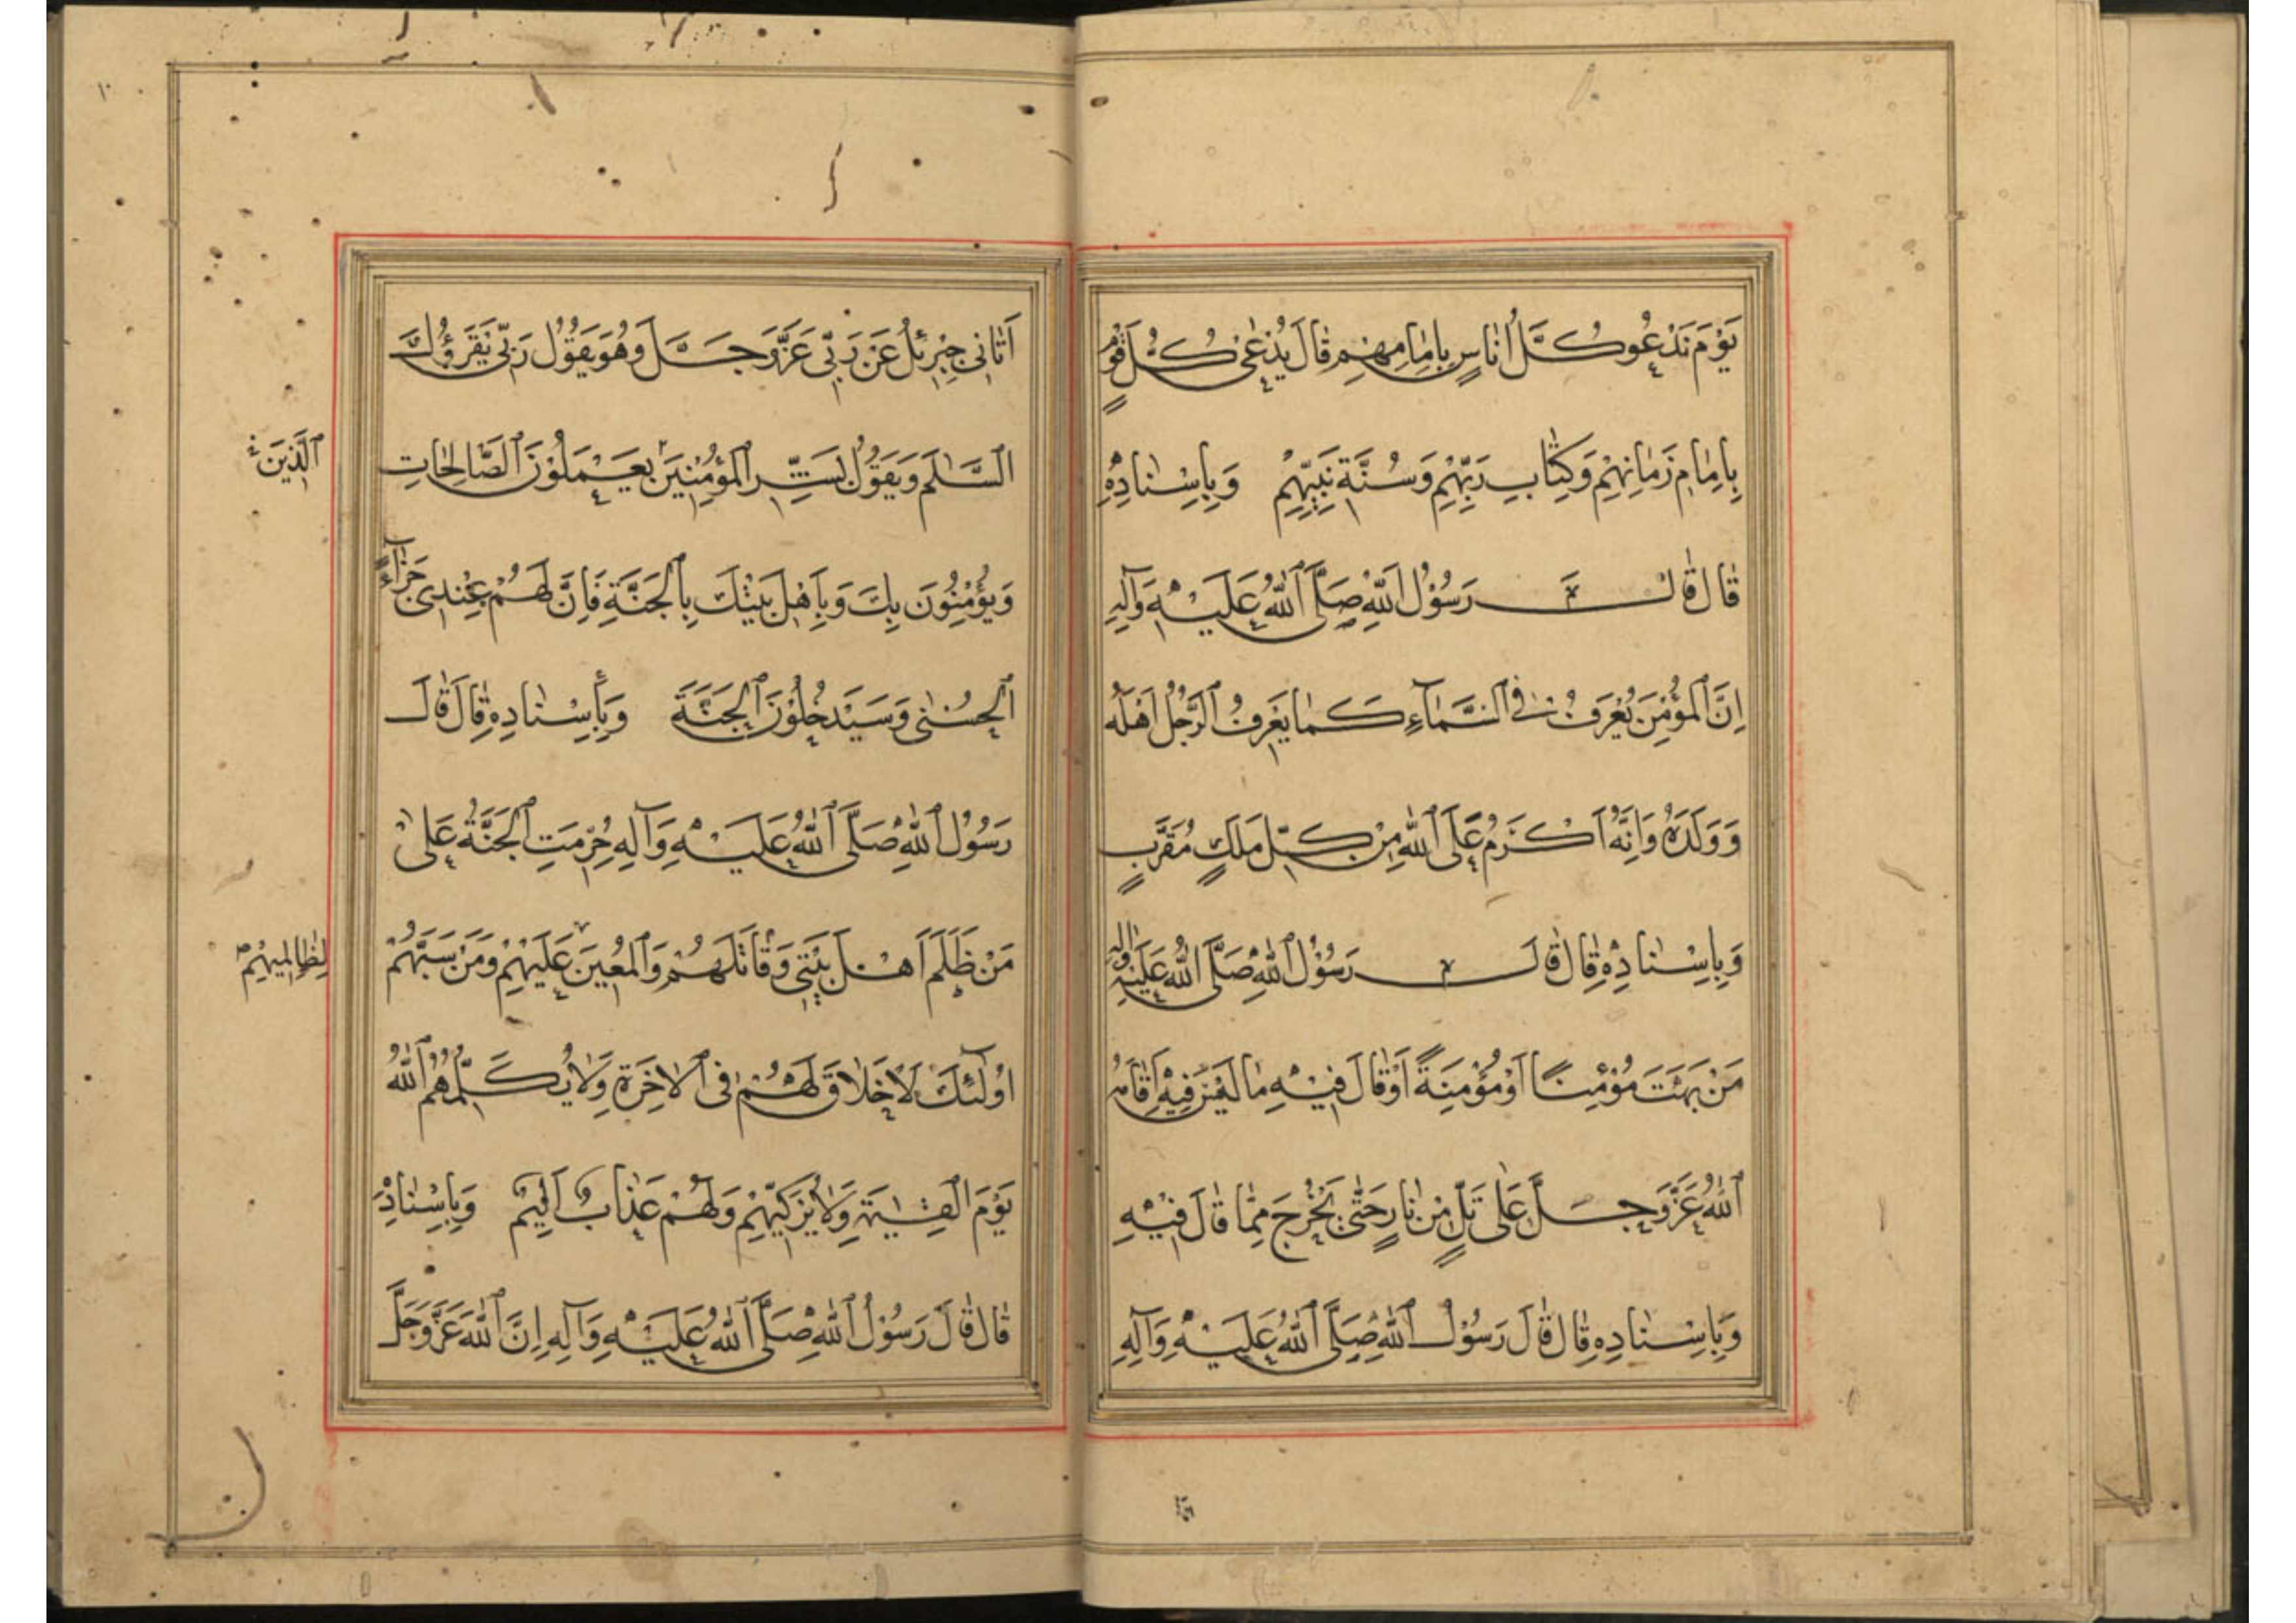 يَوْمَ نَدْعُو كُلَّ اُنَاسٍ بِاِمَامِهِمْ قَالَ يُدْعٰى كُلُّ قَوْمٍ
بِاِمَامِ زَمَانِهِمْ وَكِتَابِ رَبِّهِمْ وَسُنَّةِ نَبِيِّهِمْ وَبِاِسْنَادِهِ
قَالَ قَالَ رَسُوْلُ اللّٰهِ صَلَّى اللّٰهُ عَلَيْهِ وَآلِهِ
اِنَّ الْمُؤْمِنَ يُعْرَفُ فِي السَّمَآءِ كَمَا يَعْرِفُ الرَّجُلُ اَهْلَهُ
وَوَلَدَهُ وَاِنَّهُ اَكْرَمُ عَلَى اللّٰهِ مِنْ كُلِّ مَلَكٍ مُقَرَّبٍ
وَبِاِسْنَادِهِ قَالَ قَالَ رَسُوْلُ اللّٰهِ صَلَّى اللّٰهُ عَلَيْهِ وَآلِهِ
مَنْ بَهَتَ مُؤْمِنًا اَوْ مُؤْمِنَةً اَوْ قَالَ فِيْهِ مَا لَيْسَ فِيْهِ اَقَامَهُ
اللّٰهُ عَزَّ وَجَلَّ عَلٰى تَلٍّ مِنْ نَارٍ حَتّٰى يَخْرُجَ مِمَّا قَالَ فِيْهِ
وَبِاِسْنَادِهِ قَالَ قَالَ رَسُوْلُ اللّٰهِ صَلَّى اللّٰهُ عَلَيْهِ وَآلِهِ
اَتَانِي جِبْرِئِلُ عَنْ رَبِّي عَزَّ وَجَلَّ وَهُوَ يَقُوْلُ رَبِّي يُقْرِؤُكَ
السَّلٰمَ وَيَقُوْلُ بَشِّرِ الْمُؤْمِنِيْنَ يَعْمَلُوْنَ الصَّالِحَاتِ
الَّذِيْنَ
وَيُؤْمِنُوْنَ بِكَ وَبِاَهْلِ بَيْتِكَ بِالْجَنَّةِ فَاِنَّ لَهُمْ عِنْدِي جَزَآءً
الْحُسْنٰى وَسَيَدْخُلُوْنَ الْجَنَّةَ وَبِاِسْنَادِهِ قَالَ قَالَ
رَسُوْلُ اللّٰهِ صَلَّى اللّٰهُ عَلَيْهِ وَآلِهِ حُرِّمَتِ الْجَنَّةُ عَلٰى
مَنْ ظَلَمَ اَهْلَ بَيْتِي وَقَاتَلَهُمْ وَالْمُعِيْنَ عَلَيْهِمْ وَمَنْ سَبَّهُمْ
لِظَالِمِيْهِمْ
اُولٰٓئِكَ لَا خَلَاقَ لَهُمْ فِي الْاٰخِرَةِ وَلَا يُكَلِّمُهُمُ اللّٰهُ
يَوْمَ الْقِيٰمَةِ وَلَا يُزَكِّيْهِمْ وَلَهُمْ عَذَابٌ اَلِيْمٌ وَبِاِسْنَادِهِ
قَالَ قَالَ رَسُوْلُ اللّٰهِ صَلَّى اللّٰهُ عَلَيْهِ وَآلِهِ اِنَّ اللّٰهَ عَزَّ وَجَلَّ